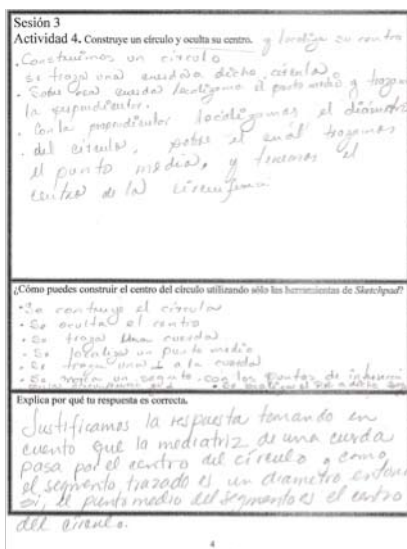 Sesión 3
Actividad 4. Construye un círculo y oculta su centro. y localiza su centro
. Construimos un círculo
se traza una cuerda a dicho círculo
. Sobre esa cuerda localizamos el punto medio y trazamos
la perpendicular.
. Con la perpendicular localizamos el diámetro
. del círculo, sobre el cual trazamos
el punto medio, y tenemos el
centro de la circunferencia
¿Cómo puedes construir el centro del círculo utilizando sólo las herramientas de Sketchpad?
• Se construye el círculo
• Se oculta el centro
• Se traza una cuerda
• Se localiza un punto medio
• Se traza una ⊥ a la cuerda
• Se un segmento con los puntos de
Explica por qué tu respuesta es correcta.
Justificamos la respuesta tomando en
cuenta que la mediatriz de una curda
pasa por el centro del círculo y como
el segmento trazado es un diametro
si, el punto medio del segmento es el centro
del círculo.
4